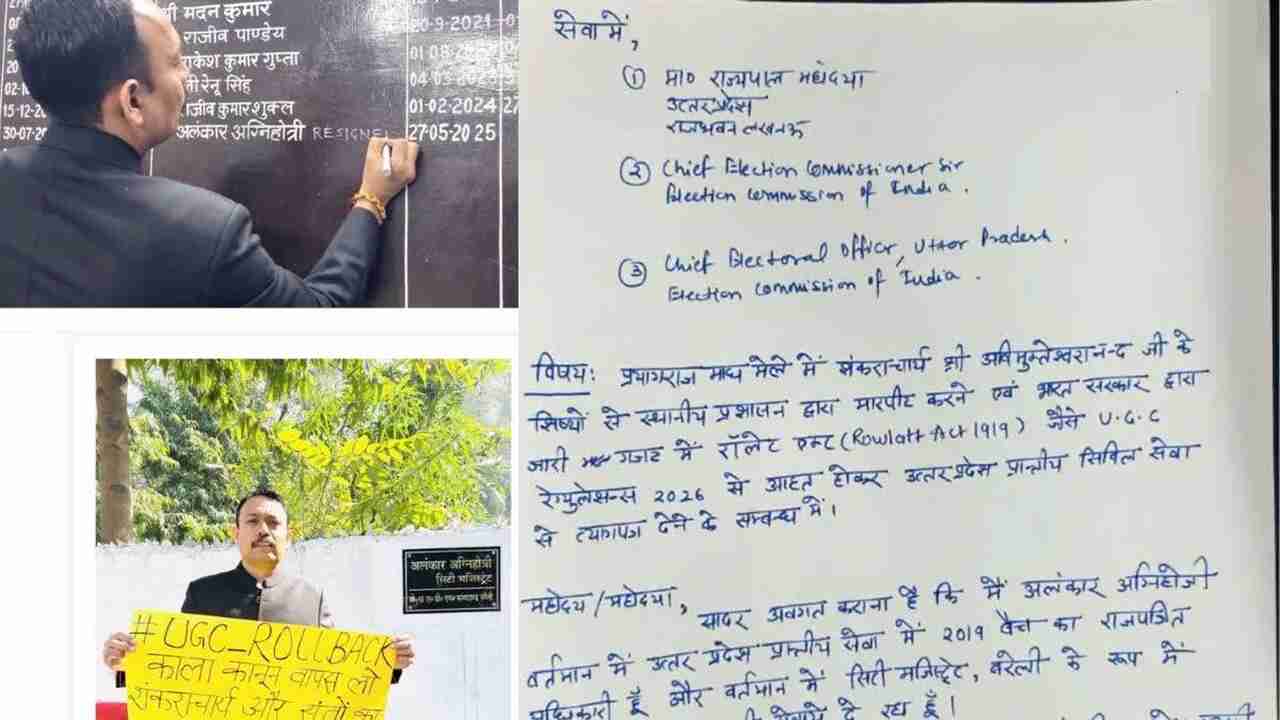 मदन कुमार 20-9-2021
राजीव पाण्डेय
राकेश कुमार गुप्ता 01 08
ती रेनू सिंह
15-12-20 राजीव कुमार शुक्ल 01-02-2024
30-07-20 अलंकार अग्निहोत्री RESIGNE 27-05-2025
अलंकार अग्निहोत्री
सिटी मजिस्ट्रेट
#UGC_ROLLBACK
काला कानून वापस लो
शंकराचार्य और संतों का
सेवा में,
① मा० राज्यपाल महोदया
उत्तर प्रदेश
राजभवन लखनऊ
② Chief Election Commissioner Sir
Election Commission of India.
③ Chief Electoral Officer, Uttar Pradesh.
Election Commission of India.
विषय: प्रयागराज माघ मेले में शंकराचार्य श्री अविमुक्तेश्वरानन्द जी के
शिष्यों से स्थानीय प्रशासन द्वारा मारपीट करने एवं भारत सरकार द्वारा
जारी गजट में रॉलेट एक्ट (Rowlatt Act 1919) जैसे U.G.C
रेगुलेशन्स 2026 से आहत होकर उत्तर प्रदेश प्रान्तीय सिविल सेवा
से त्यागपत्र देने के सम्बन्ध में।
महोदय/महोदया,
सादर अवगत कराना है कि मैं अलंकार अग्निहोत्री
वर्तमान में उत्तर प्रदेश प्रान्तीय सेवा में 2019 बैच का राजपत्रित
अधिकारी हूँ और वर्तमान में सिटी मजिस्ट्रेट, बरेली के रूप में
दे रहा हूँ।